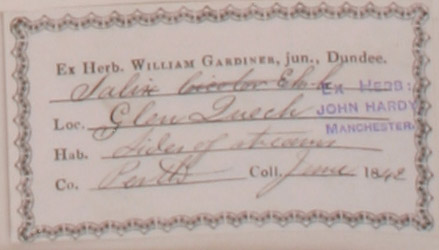 Ex Herb. WILLIAM GARDINER, jun., Dundee.
Salix bicolor Ehrh
Loc. Glen Quech
Hab. Sides of streams
Co. Perth Coll. June 1842
EX HERB:
JOHN HARDY
MANCHESTER.